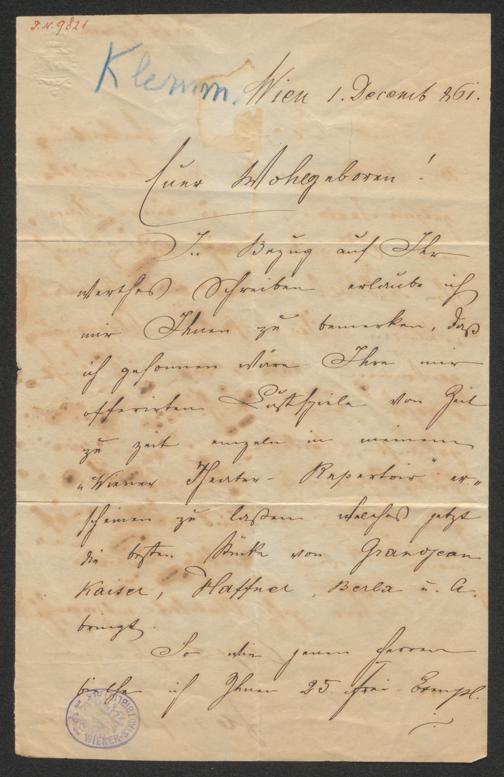 I.N. 9821
Klemm.
Wien 1. Decemb 861.
Euer Wohlgeboren!
In Bezug auf Ihr
werthes Schreiben erlaube ich
mir Ihnen zu bemerken, daß
ich gesonnen wäre Ihre mir
offerirten Lustspiele von Zeit
zu Zeit einzeln in meinem
„Wiener Theater-Repertoir“ er„
scheinen zu laßen welches jetzt
die besten Stücke von Grandjean
Kaiser, Haffner, Berla u. A.
bringt.
So wie jenen Herren
ich Ihnen 25 frei Exempl.